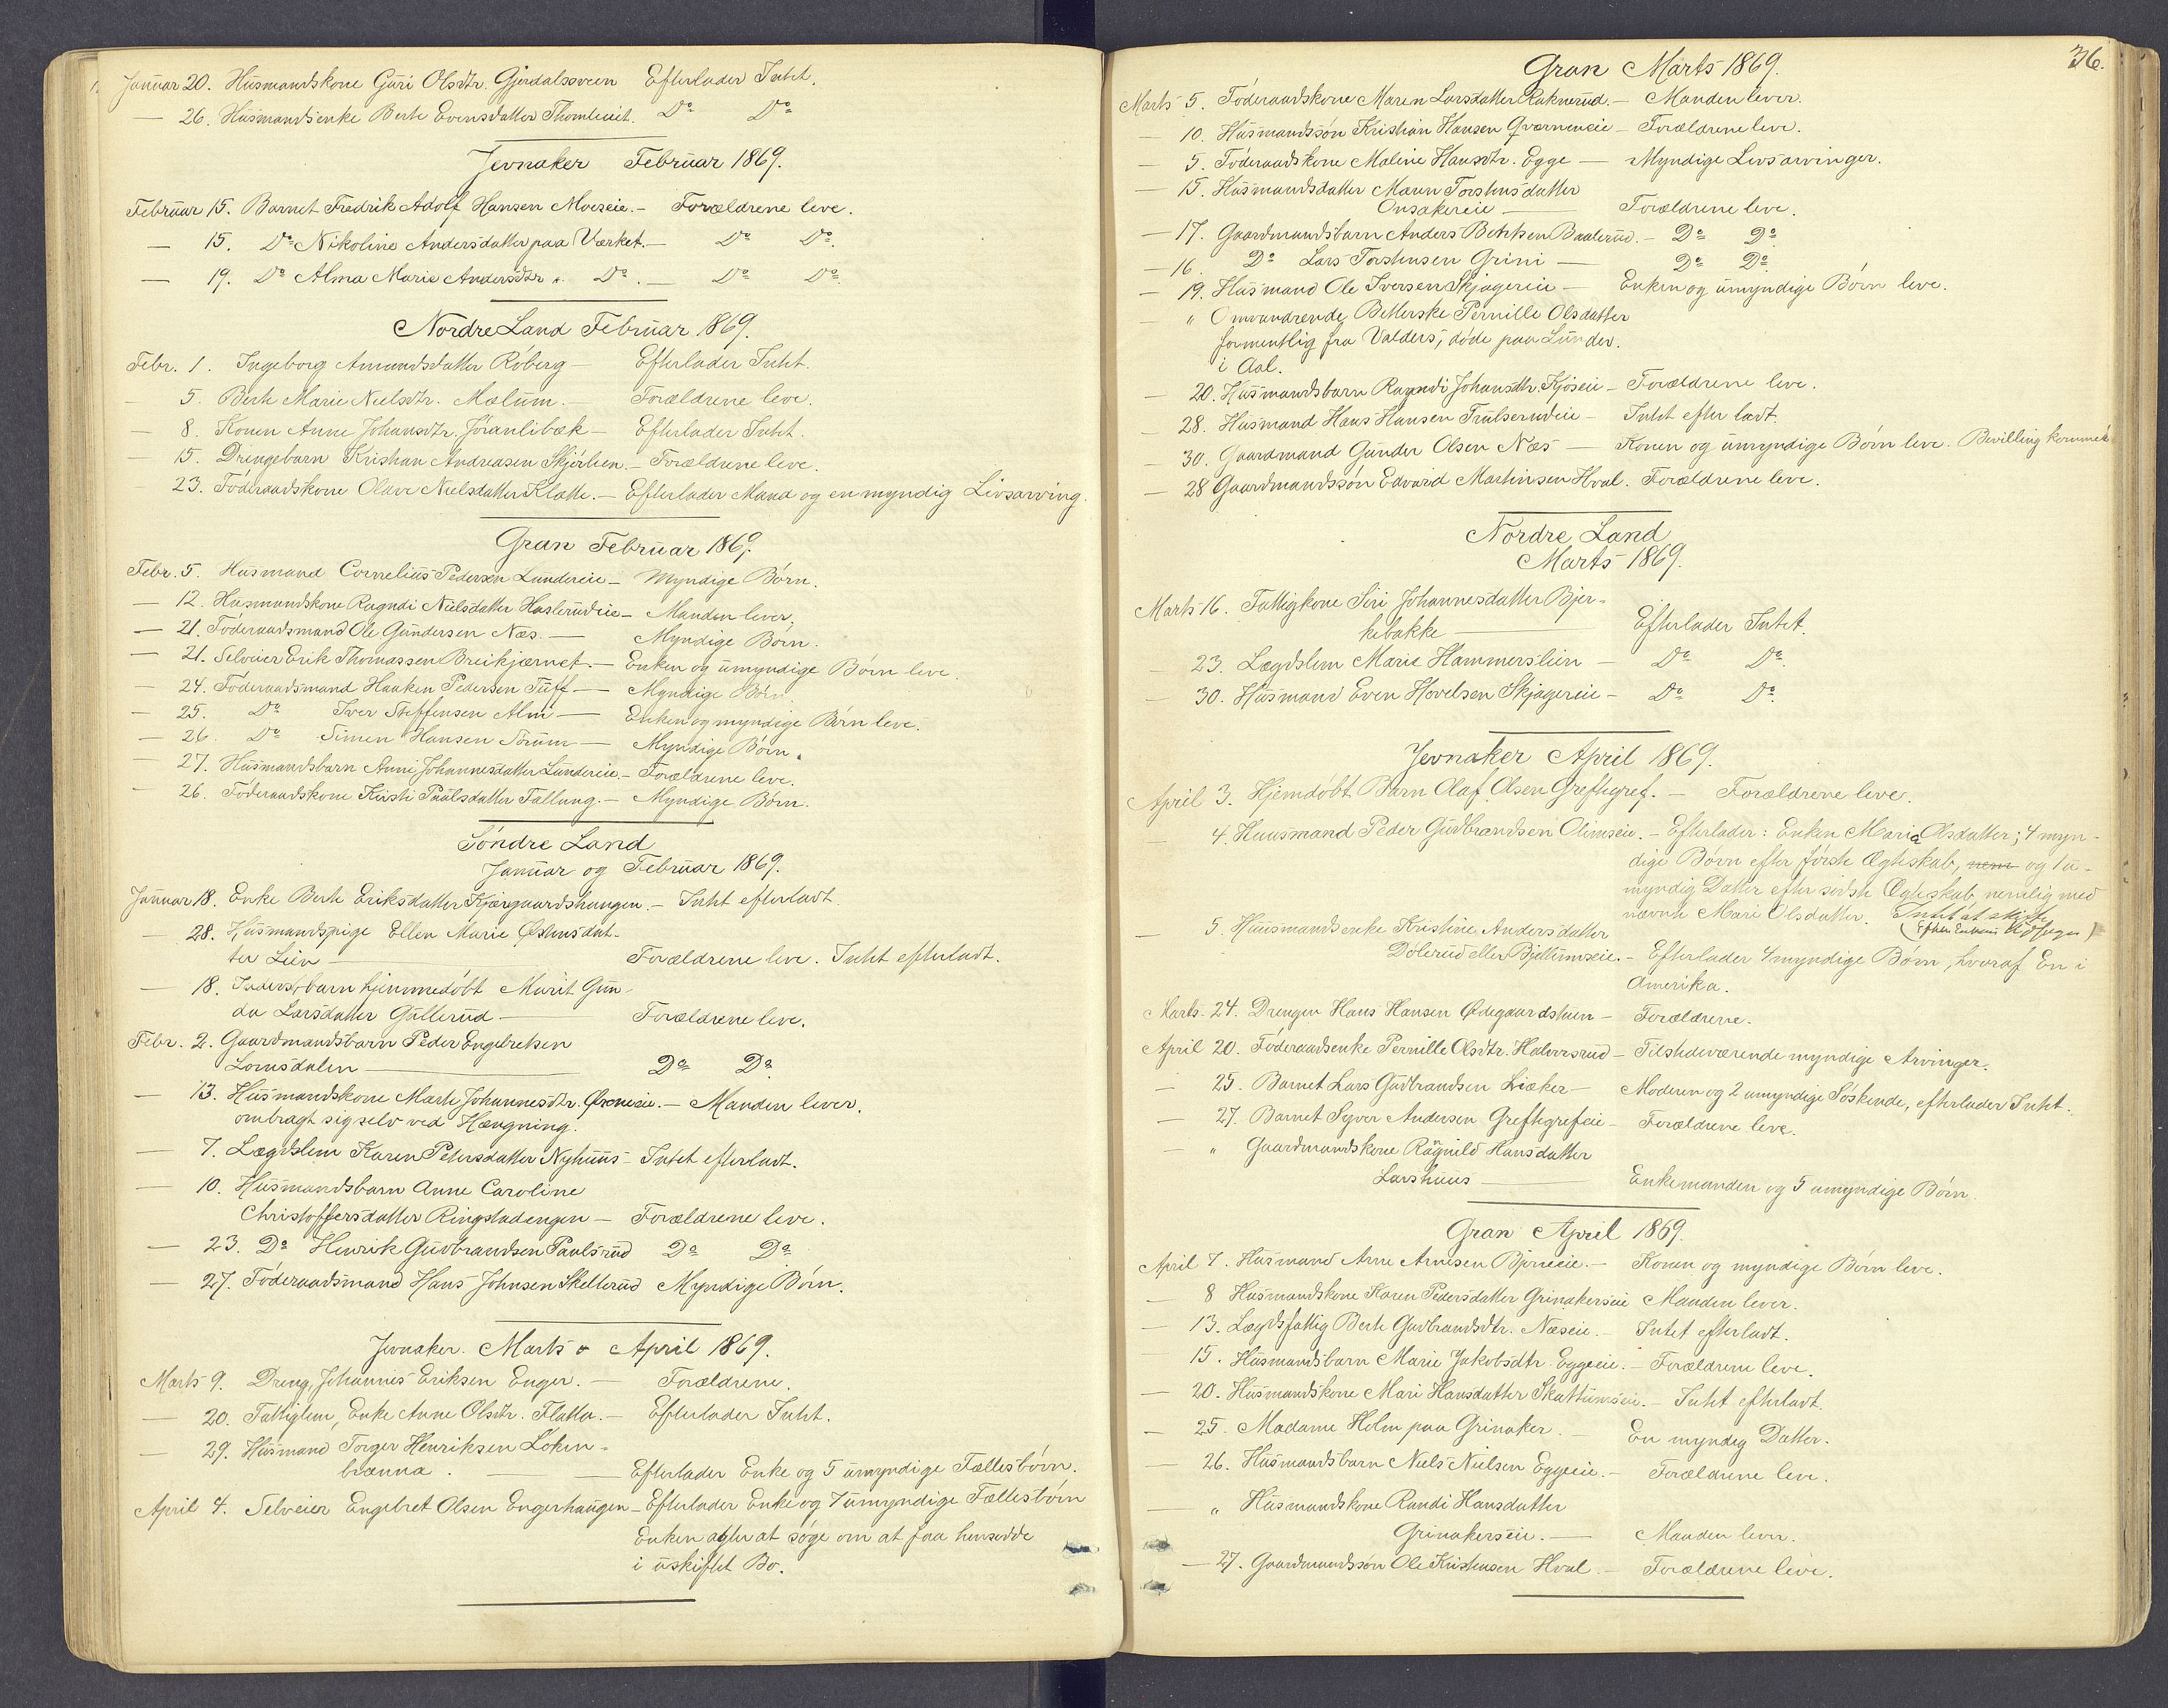 Januar 20. Husmandskone Guri Olsdtr. Gjerdalssveen Efterlader Intet.
— 26. Husmandsenke Berte Evensdatter Thomleveit. Do Do
Jevnaker Februar 1869.
Februar 15. Barnet Fredrik Adolf Hansen Moeseie. – Forældrene leve.
— 15. Do Nikoline Andersdatter paa Værket. – Do Do
— 19. Do Alma Marie Andersdtr " Do. – Do Do
Nordre Land Februar 1869.
Febr. 1. Ingeborg Amundsdatter Röberg – Efterlader Intet.
— 5. Berte Marie Nielsdtr. Mælum. – Forældrene leve.
— 8. Konen Anne Johansdtr. Jöranlibæk – Efterlader Intet.
— 15. Drengebarn Kristian Andreasen Skjörlien. – Forældrene leve.
23. Föderaadskone Olave Nielsdatter Klætte. – Efterlader Mand og en myndig Livsarving.
Gran Februar 1869.
Febr. 5. Husmand Cornelius Pedersen Lundereie – Myndige Börn.
— 12. Husmandskone Ragndi Nielsdatter Haslerudeie – Manden lever.
— 21. Föderaadsmand Ole Gundersen Næs. — Myndige Börn.
— 21. Selveier Erik Thomassen Breikjærnet. – Enken og umyndige Börn leve.
— 24. Föderaadsmand Haaken Pedersen Tuff — Myndige Börn
— 25. Do Iver Steffensen Alm — Enken og myndige Börn leve.
— 26. Do Simen Hansen Sörum — Myndige Börn.
— 27. Husmandsbarn Anni Johannesdatter Lundereie. – Forældrene leve.
— 26. Föderaadskone Kirsti Paulsdatter Tallung. – Myndige Börn.
Söndre Land
Januar og Februar 1869.
Januar 18. Enke Berte Eriksdatter Kjærgaardshaugen. – Intet efterladt.
— 28. Husmandspige Ellen Marie Östensdat-
ter Lien — Forældrene leve. Intet efterladt.
— 18. Inderstbarn hjemmedöbt Marit Gun-
da Larsdatter Gullerud — Forældrene leve.
Febr. 2. Gaardmandsbarn Peder Engebretsen
Lomsdalen — Do Do
— 13. Husmandskone Marte Johannesdtr. – Manden lever.
ombragt sig selv ved Hængning.
— 7. Lægdslem Karen Petersdatter Nyhuus – Intet efterladt.
— 10. Husmandsbarn Anne Caroline
Christoffersdatter Ringstadengen – Forældrene leve.
— 23. Do Henrik Gudbrandsen Paulsrud Do Do
— 27. Föderaadsmand Hans Johnsen Skellerud Myndige Börn.
Jevnaker. Marts o April 1869.
Marts 9. Dreng, Johannes Eriksen Enger. — Forældrene.
— 20. Fattiglem, Enke Anne Olsdtr. Flatla. – Efterlader Intet.
— 29. Husmand Torger Henriksen Loken-
brænna. — Efterlader Enke og 5 umyndige Fællesbörn.
April 4. Selveier Engebret Olsen Engerhaugen – Efterlader Enke og 7 umyndige Fællesbörn
Enken agter at söge om at faa hensidde
i uskiftet Bo.
36.
Gran Marts 1869.
Marts 5. Föderaadskone Maren Larsdatter Raknerud. – Manden lever.
— 10. Husmandssön Kristian Hansen Qværneneie – Forældrene leve.
— 5. Föderaadskone Maline Hansdtr. Egge — Myndige Livsarvinger.
— 15. Husmandsdatter Maren Torstensdatter
Onsakereie — Forældrene leve.
— 17. Gaardmandsbarn Anders Berthsen Baalerud. – Do Do
— 16. Do Lars Torstensen Grini — Do Do
— 19. Husmand Ole Iversen Skjageriie — Enken og umyndige Börn leve.
— " Omvandrende Betlerske Pernille Olsdatter
formentlig fra Valders, döde paa Lunder.
i Aal.
— 20. Husmandsbarn Ragndi Johansdtr. Kjöseie – Forældrene leve.
— 28. Husmand Hans Hansen Trulserudeie – Intet efterladt.
— 30. Gaardmand Gunder Olsen Næs — Konen og umyndige Börn leve. Bevilling kommet
— 28 Gaardmandssön Edvard Martinsen Hval. Forældrene leve.
Nordre Land
Marts 1869.
Marts 16. Fattigkone Siri Johannesdatter Bjer-
kebakke — Efterlader Intet.
— 23. Lægdslem Marie Hammerslien — Do Do.
— 30. Husmand Even Hovelsen Skjageriie – Do Do.
Jevnaker April 1869.
April 3. Hjemdöbt Barn Olaf Olsen Greftegref. – Forældrene leve.
— 4. Huusmand Peder Gudbrandsen Olimseie. – Efterlader: Enken Maria Olsdatter; 4 myn-
dige Börn efter förste Ægteskab, nem og 1 u-
myndig Datter efter sidste Ægteskab, nemlig med
nævnte Mari Olsdatter. Intet at skifte
(Efter Enkens Udsagn)
— 5. Huusmandsenke Kristine Andersdatter
Dölerud eller Bjellumseie. – Efterlader 4 myndige Börn, hvoraf En i
Amerika.
Marts 24. Drengen Hans Hansen Ödegaardstuen – Forældrene.
April 20. Föderaadsenke Pernille Olsdtr. Halvorsrud – Tilstedeværende myndige Arvinger.
— 25. Barnet Lars Gudbrandsen Liæker – Moderen og 2 umyndige Söskende, efterlader Intet.
— 27. Barnet Syver Andersen Greftegrefeie – Forældrene leve.
— " Gaardmandskone Ragnild Hansdatter
Larshuus — Enkemanden og 5 umyndige Börn.
Gran April 1869.
April 7. Husmand Arne Arnesen Bjoneeie. – Konen og myndige Börn leve.
— 8 Husmandskone Karen Pedersdatter Grinakerseie Manden lever.
— 13. Lægdsfattig Berte Gudbrandsdtr. Næseie. – Intet efterladt.
— 15. Husmandsbarn Marie Jakobsdtr. Eggeeie. – Forældrene leve.
— 20. Husmandskone Mari Hansdatter Skattumseie. – Intet efterladt.
— 25. Madame Holm paa Grinaker. — En myndig Datter.
— 26. Husmandsbarn Niels Nielsen Eggeeie. – Forældrene leve.
— " Husmandskone Randi Hansdatter
Grinakerseie. — Manden lever.
— 27. Gaardmandssön Ole Kristensen Hval. – Forældrene leve.